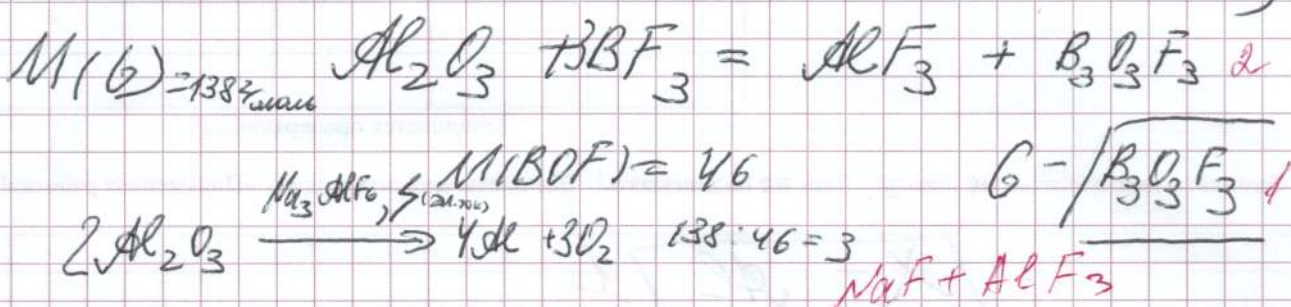 M(G)=138 г/моль Al₂O₃ + 3BF₃ = AlF₃ + B₃O₃F₃ 2
M(BOF) = 46 G - B₃O₃F₃ 1
2Al₂O₃ Na₃AlF₆, (эл.ток) → 4Al + 3O₂ 138:46 = 3
NaF + AlF₃